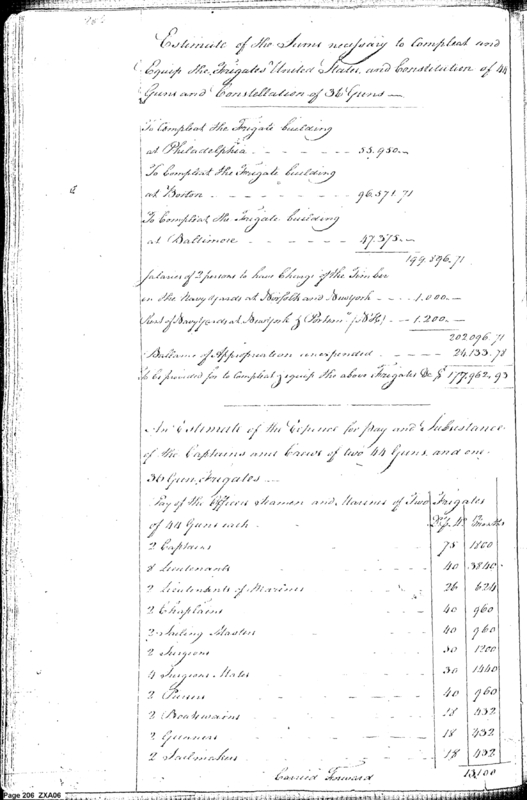 Estimate of the Sums necessary to compleat and
Equip the Frigates United States, and Constitution of 44
Guns and Constellation of 36 Guns —
To Compleat the Frigate building
at Philadelphia - - - - 55.950.—
To Compleat the Frigate building
at Boston - - - - 96.571.71
To Compleat the Frigate building
at Baltimore - - - - 47.375.—
199.896.71
Salaries of 2 persons to have Charge of the Timber
in the Navy Yards at Norfolk and New York - - - 1.000.—
Rent of Navy Yards at New York & (N.H.) - - 1.200.—
202.096.71
Ballance of Appropriation unexpended - - - - 24.133.78
To be provided for to compleat & equip the above Frigates &c $ 177.962.93
An Estimate of the Expence for pay and Subsistance
of the Captains and Crews of two 44 Guns, and one
36 Gun, Frigates —
Pay of the Officers Seamen and Marines of Two Frigates
of 44 Guns each -
2 Captains 75 1800
8 Lieutenants 40 3840
2 Lieutenants of Marines 26 624
2 Chaplains 40 960
2 Sailing Masters 40 960
2 Surgeons 50 1200
4 Surgeons Mates 30 1440
2 Pursers 40 960
2 Boatswains 18 432
2 Gunners 18 432
2 Sailmakers 18 432
Carried Forward 13100
Page 206 ZXA06